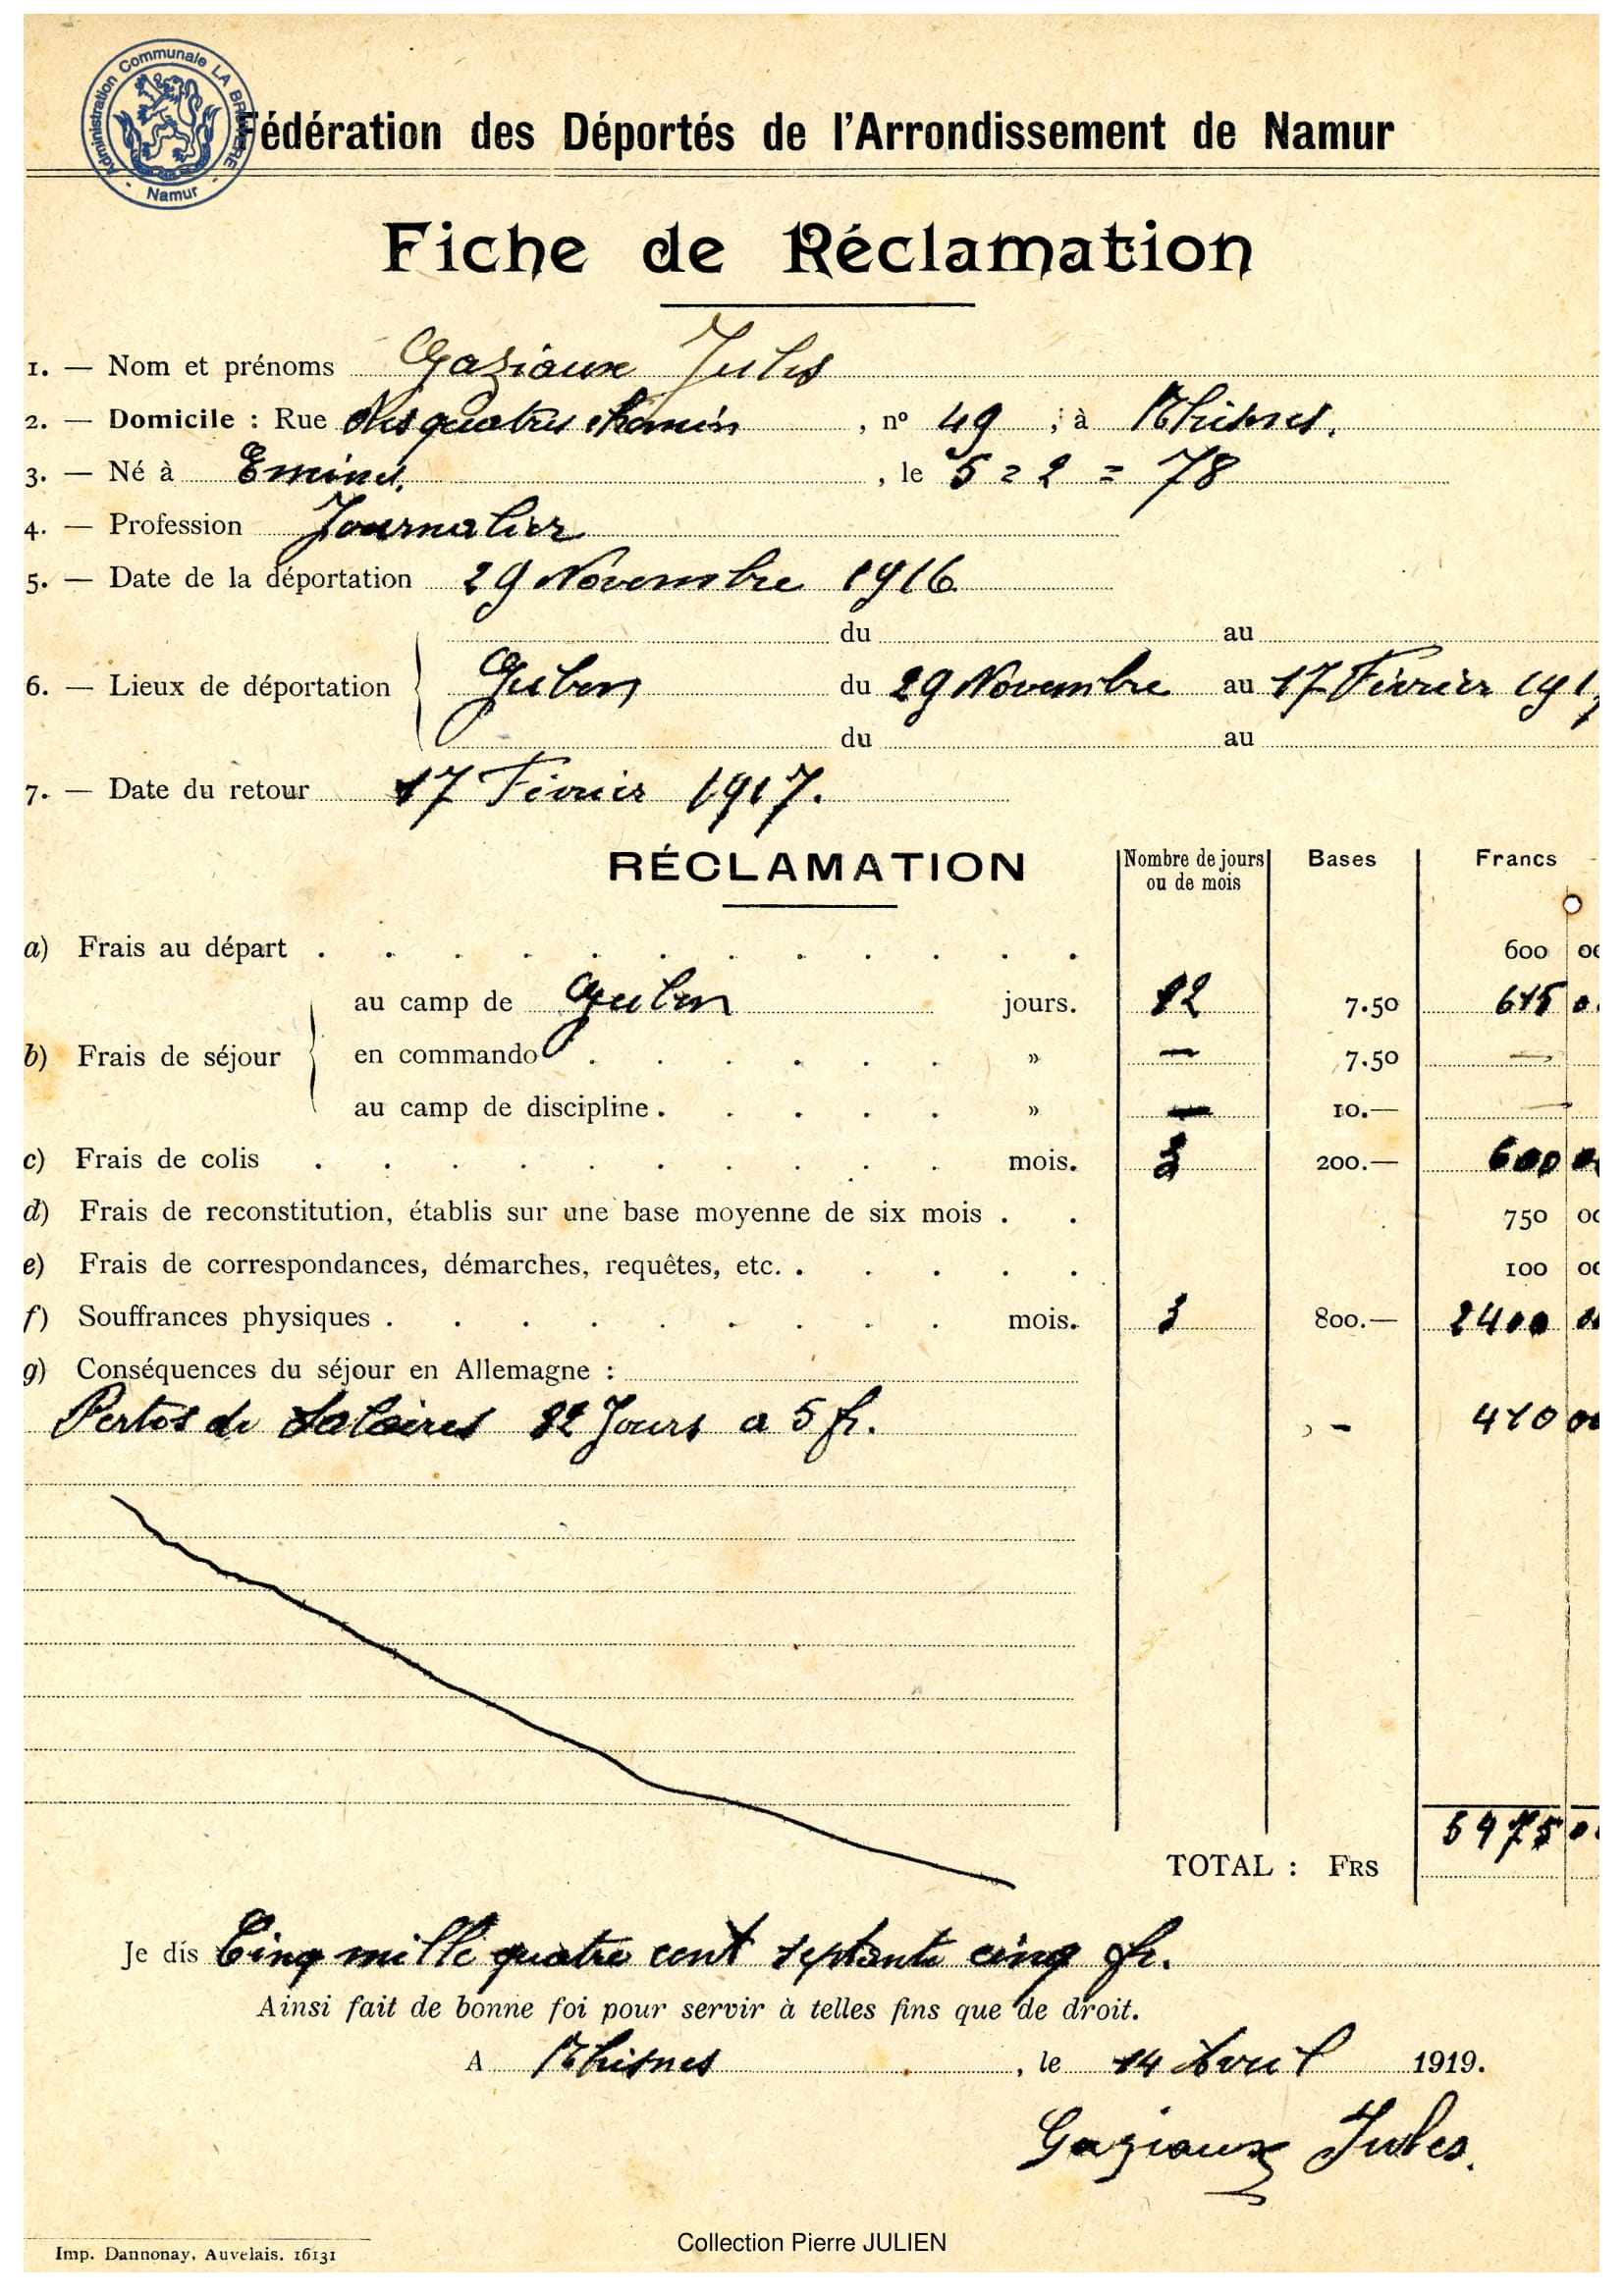 Administration Communale LA BRUYERE
- Namur -
Fédération des Déportés de l'Arrondissement de Namur
Fiche de Réclamation
1. — Nom et prénoms Gaziaux Jules
2. — Domicile : Rue des quatres chemin , n° 49 ; à Rhisnes.
3. — Né à Emines. , le 5 = 2 = 78
4. — Profession Journalier
5. — Date de la déportation 29 Novembre 1916
du au
6. — Lieux de déportation Guben du 29 Novembre au 17 Février 1917
du au
7. — Date du retour 17 Février 1917.
RÉCLAMATION Nombre de jours ou de mois Bases Francs
a) Frais au départ . . . . . . . . . . . . 600 00
au camp de Guben jours. 82 7.50 615 0
b) Frais de séjour en commando . . . . . . » — 7.50 —
au camp de discipline . . . . . » — 10.— —
c) Frais de colis . . . . . . . . . . mois. 3 200.— 600 00
d) Frais de reconstitution, établis sur une base moyenne de six mois . . 750 00
e) Frais de correspondances, démarches, requêtes, etc. . . . . . 100 00
f) Souffrances physiques . . . . . . . . . mois. 3 800.— 2400 00
g) Conséquences du séjour en Allemagne :
Pertes de Salaires 82 Jours a 5 fr. - 410 00
5475 0
TOTAL : FRS
Je dis Cinq mille quatre cent septante cinq fr.
Ainsi fait de bonne foi pour servir à telles fins que de droit.
A Rhisnes , le 14 Avril 1919.
Gaziaux Jules.
Collection Pierre JULIEN
Imp. Dannonay, Auvelais. 16131